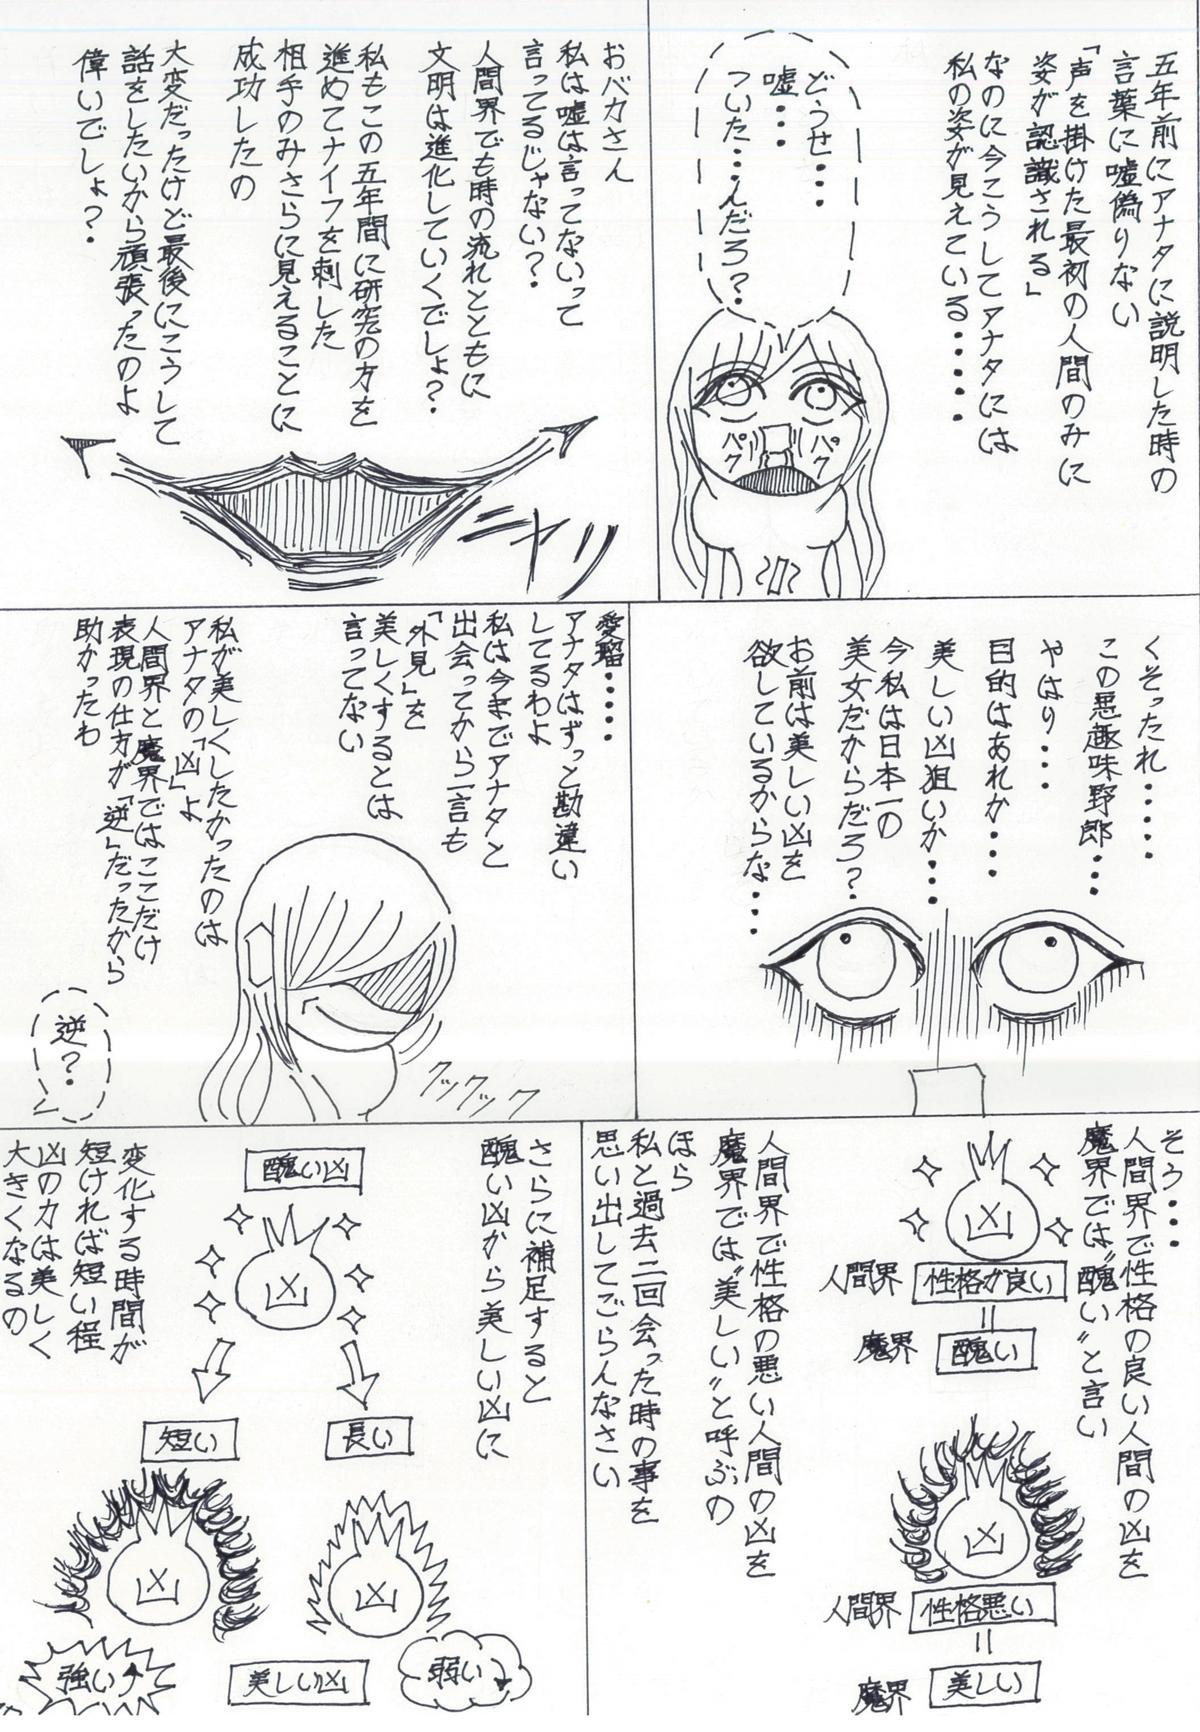 五年前にアナタに説明した時の
言葉に嘘偽りない
「声を掛けた最初の人間のみに
姿が認識される」
なのに今こうしてアナタには
私の姿が見えている・・・・・
どうせ・・・
嘘・・・
ついた・・・んだろ？
パク
パク
おバカさん
私は嘘は言ってないって
言ってるじゃない？
人間界でも時の流れとともに
文明は進化していくでしょ？
私もこの五年間に研究の方を
進めてナイフを刺した
相手のみさらに見えることに
成功したの
大変だったけど最後にこうして
話をしたいから頑張ったのよ
偉いでしょ？
ニヤリ
くそったれ・・・・・
この悪趣味野郎・・・
やはり・・・
目的はあれか・・・
美しい凶狙いか・・・
今私は日本一の
美女だからだろ？
お前は美しい凶を
欲しているからな・・・
愛瑠・・・・・
アナタはずっと勘違い
してるわよ
私は今までアナタと
出会ってから一言も
「外見」を
美しくするとは
言ってない
私が美しくしたかったのは
アナタの「凶」よ
人間界と魔界ではここだけ
表現の仕方が「逆」だったから
助かったわ
クックックック
逆？
そう・・・
人間界で性格の良い人間の凶を
魔界では〝醜い〟と言い
人間界
性格が良い
＝
魔界
醜い
人間界で性格の悪い人間の凶を
魔界では〝美しい〟と呼ぶの
人間界
性格悪い
＝
魔界
美しい
ほら
私と過去二回会った時の事を
思い出してごらんなさい
さらに補足すると
醜い凶から美しい凶に
醜い凶
長い
短い
弱い
美しい凶
強い
変化する時間が
短ければ短い程
凶の力は美しく
大きくなるの